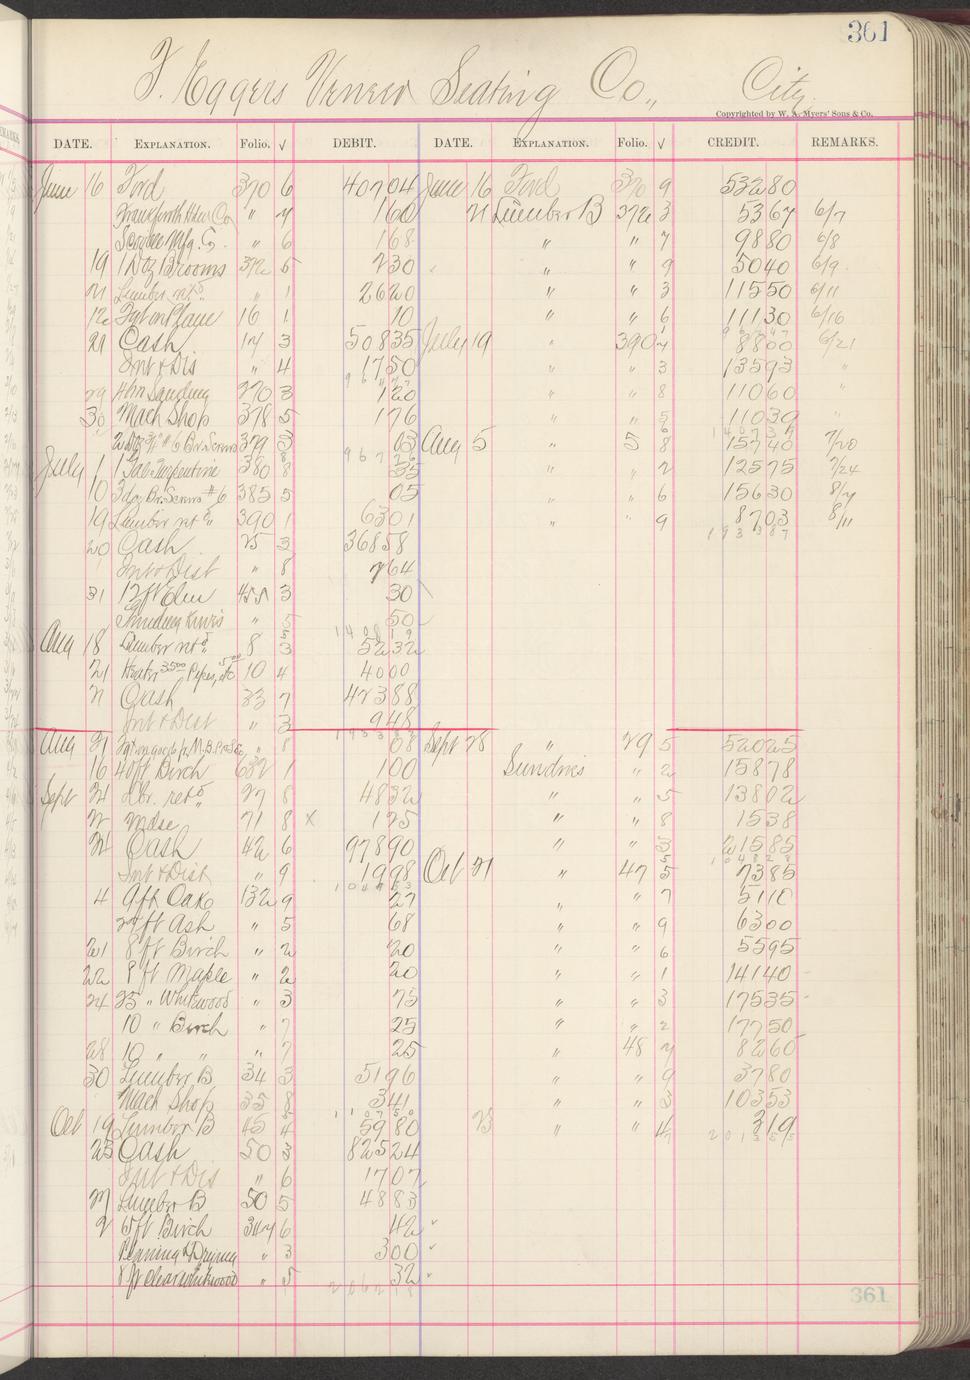 361
F. Eggers Veneer Seating Co., City.
Copyrighted by W. A. Myers' Sons & Co.
DATE. EXPLANATION. Folio. √ DEBIT. DATE. EXPLANATION. Folio. √ CREDIT. REMARKS.
June 16 Ford 370 6 40704 June 16 Ford 370 9 53280
Frankfurth Hdw Co " 160 21 Lumber B 372 3 5367 6/7
Mfg. Co. " 6 168 " " 7 9880 6/8
19 1 Dz Brooms 372 5 230 " " 9 5040 6/9
21 Lumber retd " 1 2620 " " 3 11550 6/11
16 1 10 " " 6 11130 6/16
21 Cash 14 3 50835 July 19 " 390 8800 6/21
Int & Dis " 4 1750 " " 3 13593 "
29 4 hr Sanding 270 3 120 " " 8 11060 "
30 Mach Shop 378 5 176 " " 5 11039 "
2 Dz #6 Br. Screws 379 3 03 Aug 5 " 5 8 15740 7/20
July 1 1 Gal Turpentine 380 8 35 " " 2 12575 7/24
10 3 dz Br. Screws #6 385 5 05 " " 6 15630 8/7
19 Lumber retd 390 1 6301 " " 9 8703 8/11
20 Cash 25 3 36858
Int & Dist " 8 764
31 12 ft Elm 455 3 30
" 5 50
Aug 18 Lumber retd 8 3 5232
21 Heater 35.00 Pipes, 5.00 10 4 4000
21 Cash 33 7 42388
Int & Dist " 3 948
Aug 31 " 8 08 Sept 28 " 29 5 52025
16 40 ft Birch 632 1 100 Sundries " 2 15878
Sept 24 Lbr. retd 27 8 4832 " " 5 13802
Mdse 71 8 x 125 " " 8 1538
24 Cash 42 6 97890 " " 3 21585
Int & Dist " 9 1998 Oct 21 " 47 5 7385
4 9 ft Oak 132 9 27 " " 7 5110
27 ft Ash " 5 68 " " 9 6300
21 8 ft Birch " 2 20 " " 6 5595
22 8 ft Maple " 2 20 " " 1 14140
24 25 " Whitewood " 3 75 " " 3 17535
10 " Birch " 7 25 " " 2 17750
28 10 " " " 7 25 " 48 7 8260
30 Lumber B 34 3 5196 " " 9 3780
Mach Shop 35 8 341 " " 3 10353
Oct 19 Lumber B 45 4 5980 23 " " 4 319
25 Cash 50 3 82524
Int & Dis " 6 1707
27 Lumber B 50 5 4883
2 65 ft Birch 347 6 42
Planing & Drying " 3 300
8 ft clear whitewood " 5 32
206218
361